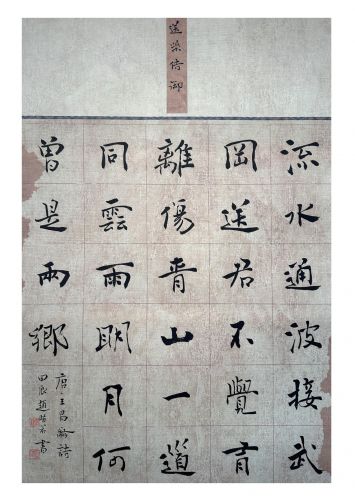 送柴侍御
流水通波接武
岡送君不覺有
離傷青山一道
同雲雨明月何
曾是兩鄉
唐·王昌齡詩
趙書